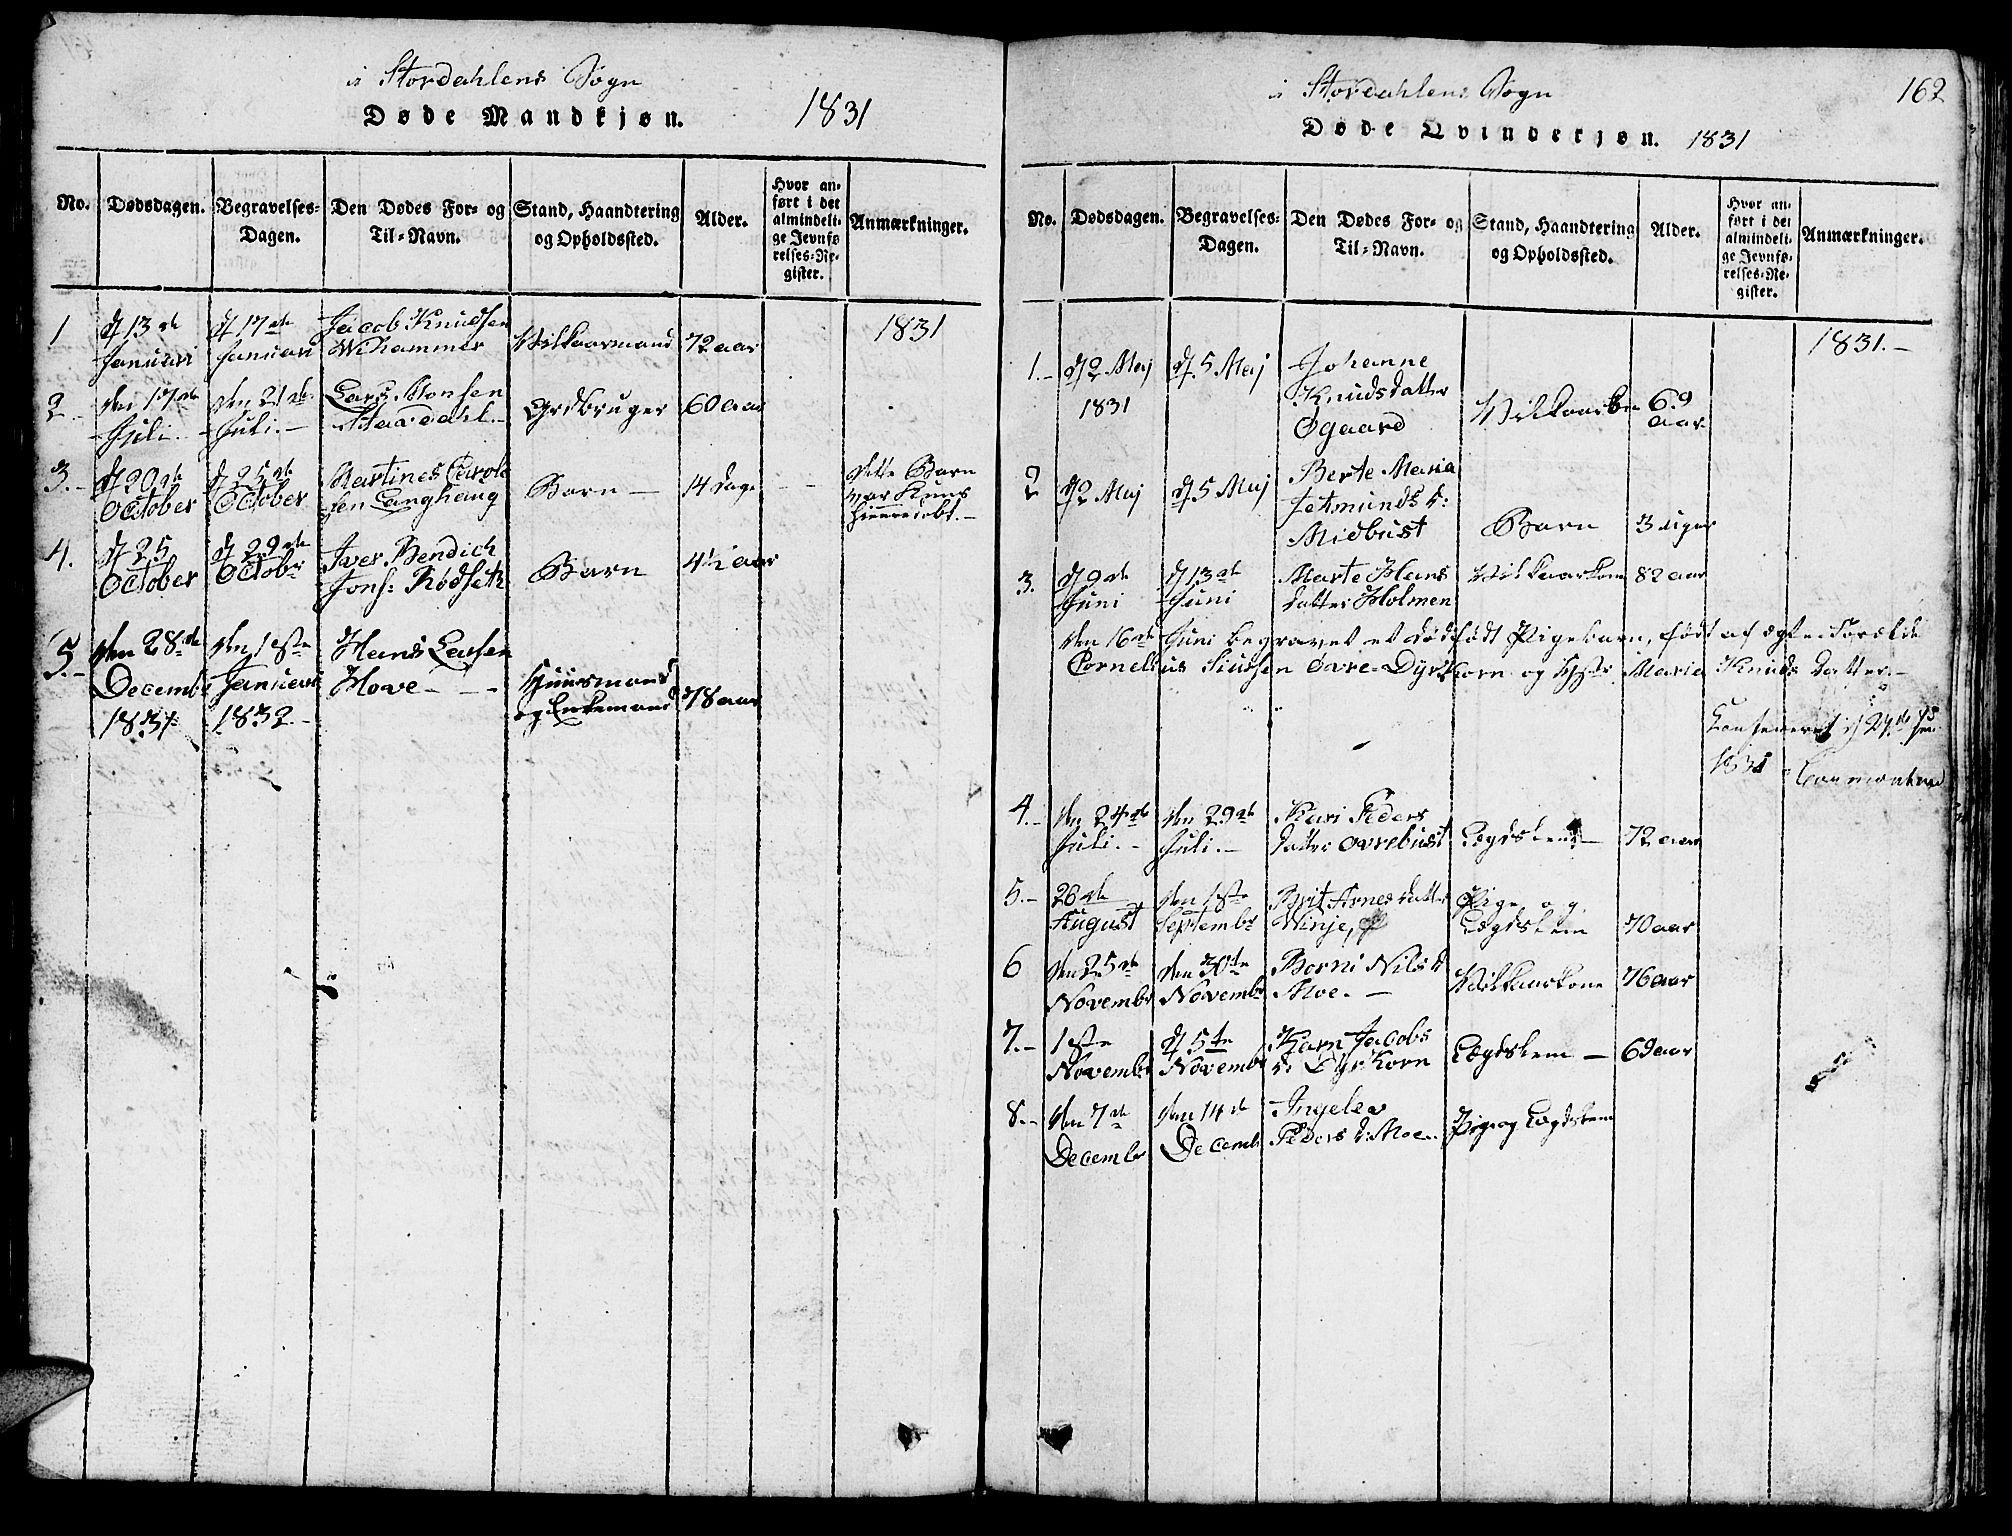 i Stordahlens Sogn
Døde Mandkjøn. 1831
No. Dødsdagen. Begravelses-Dagen. Den Dødes For- og Til-Navn. Stand, Haandtering og Opholdssted. Alder. Hvor anført i det almindelige Jevnførelses-Register. Anmærkninger.
1 d 13de d 17de Jacob Knudsen Vilkaarmand 72 aar 1831
Januari Januari Wihammer
2 den 17de den 21de Lars Monsen Grdbruger 60 aar
Juli. Juli.
3. d 20de d 25de Martines Carol- Barn 14 dage dette Barn
October October sen Langhaug var Kuns
hiemmedøbt.
4. d 25 d 29de Iver Bendich Barn 4½ aar
October Octobr Jons: Rødseth
5. den 28de den 1ste Hans Larsen Huusmand
Decembr Januari Hove og Enkemand 78 aar
1831 1832
i Stordahlens Sogn 162
Døde Qvindekjøn. 1831
No. Dødsdagen. Begravelses-Dagen. Den Dødes For- og Til-Navn. Stand, Haandtering og Opholdssted. Alder. Hvor anført i det almindelige Jevnførelses-Register. Anmærkninger.
1831.
1. d 2 Maj d. 5 Maj Johanne
1831 Knudsdatter 69
Øgaard aar
2 d 2 Maj d. 5 Maj Berte Maria
Jetmunds d:
Midbust Barn 3 uger
3. d 9de d 13de Marte Hans Vilkaarkone 82 aar
Juni Juni datter Holmen
den 16de Juni begravet et dødfødt Pigebarn, født af ægte Forælde
Cornelius Siursen Øvre-Dyrkorn og Hstr Maria Knuds datter.
Confereret d 27de
1831
4. den 24de den 29de Kari Peders
Juli. Juli. datter Øvrebust Lægdslem 72 aar
5. 26de den 1ste Brit Arnesdatter Pige og
August Septembr Winje, Lægdslem 70 aar
6 den 25de den 30te Borni Nils d
Novembr Novembr Moe. Vilkaarkone 76 aar
7. 1ste d 5te Karn Jacobs
Novembr Novembr d. Dyrkorn Lægdslem 69 aar
8. den 7de den 14de Ingelev
Decembr Decembr Peders d: Moe. Pige og Lægdslem